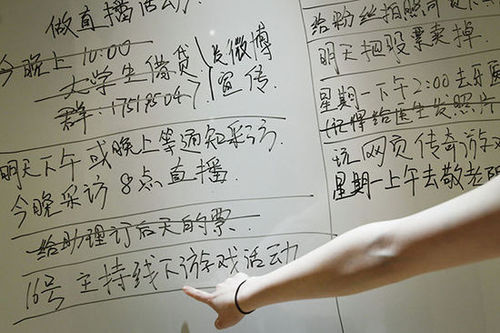 做直播活动
今晚上10:00
大学生借贷
发微博
宣传
明天下午或晚上等通知采访
今晚采访 8点直播
给助理订后天的票
16号 主持线下游戏活动
给粉丝拍照
明天把股票卖掉
星期一下午2:00去牙医
(记得给医生发照片
玩网页传奇游戏
星期一上午去敬老院